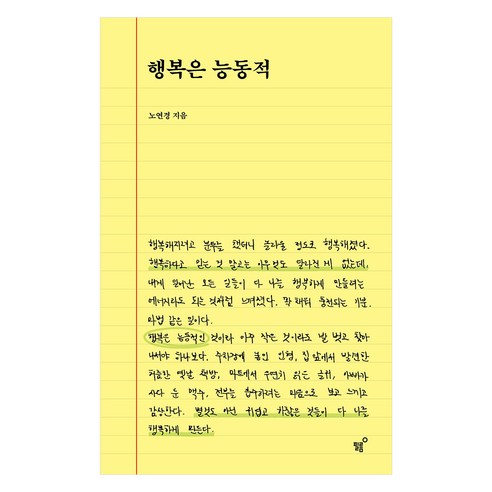 행복은 능동적
노연경 지음
행복해지려고 분투를 했더니 놀라울 정도로 행복해졌다.
행복하다고 믿는 것 말고는 아무것도 달라진 게 없는데,
내게 일어난 모든 일들이 다 나를 행복하게 만들려는
에너지라도 되는 것처럼 느껴졌다. 꽉 채워 충전되는 기분.
마법 같은 일이다.
행복은 능동적인 것이라 아주 작은 것이라도 발 벗고 찾아
나서야 하나보다. 수차경에 붙인 인형, 집 앞에서 발견한
허름한 옛날 책방, 마트에서 우연히 읽은 글귀, 아빠가
사다 둔 맥주, 전부를 흡수하려는 마음으로 보고 느끼고
감상한다. 별것도 아닌 귀엽고 하찮은 것들이 다 나를
행복하게 만든다.
필름